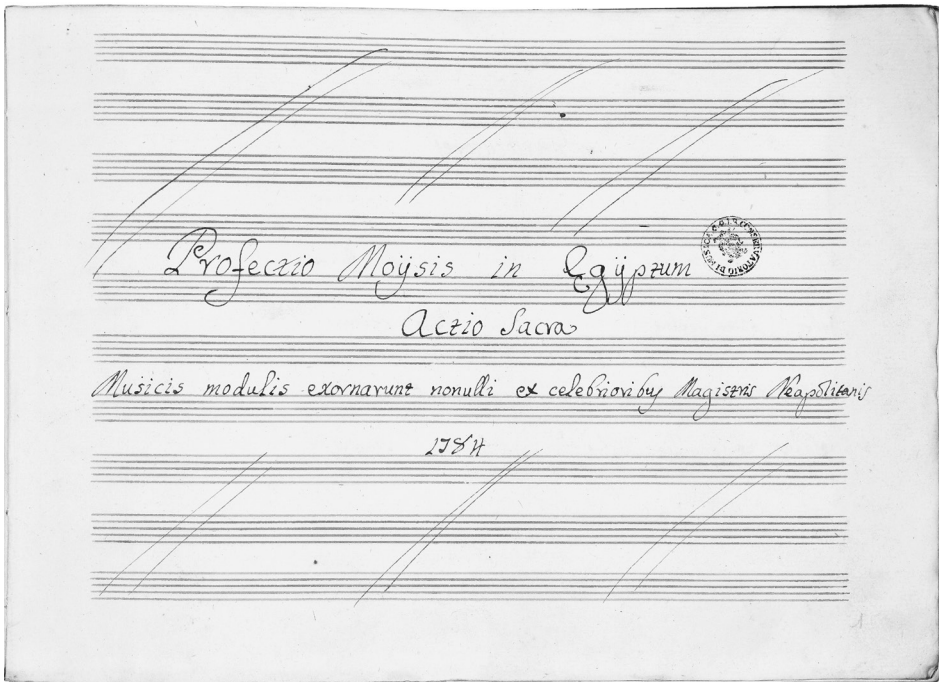 Profectio Moÿsis in Egÿptum
Actio Sacra
Musicis modulis exornarunt nonulli ex celebrioribus Magistris Neapolitanis
1784
1